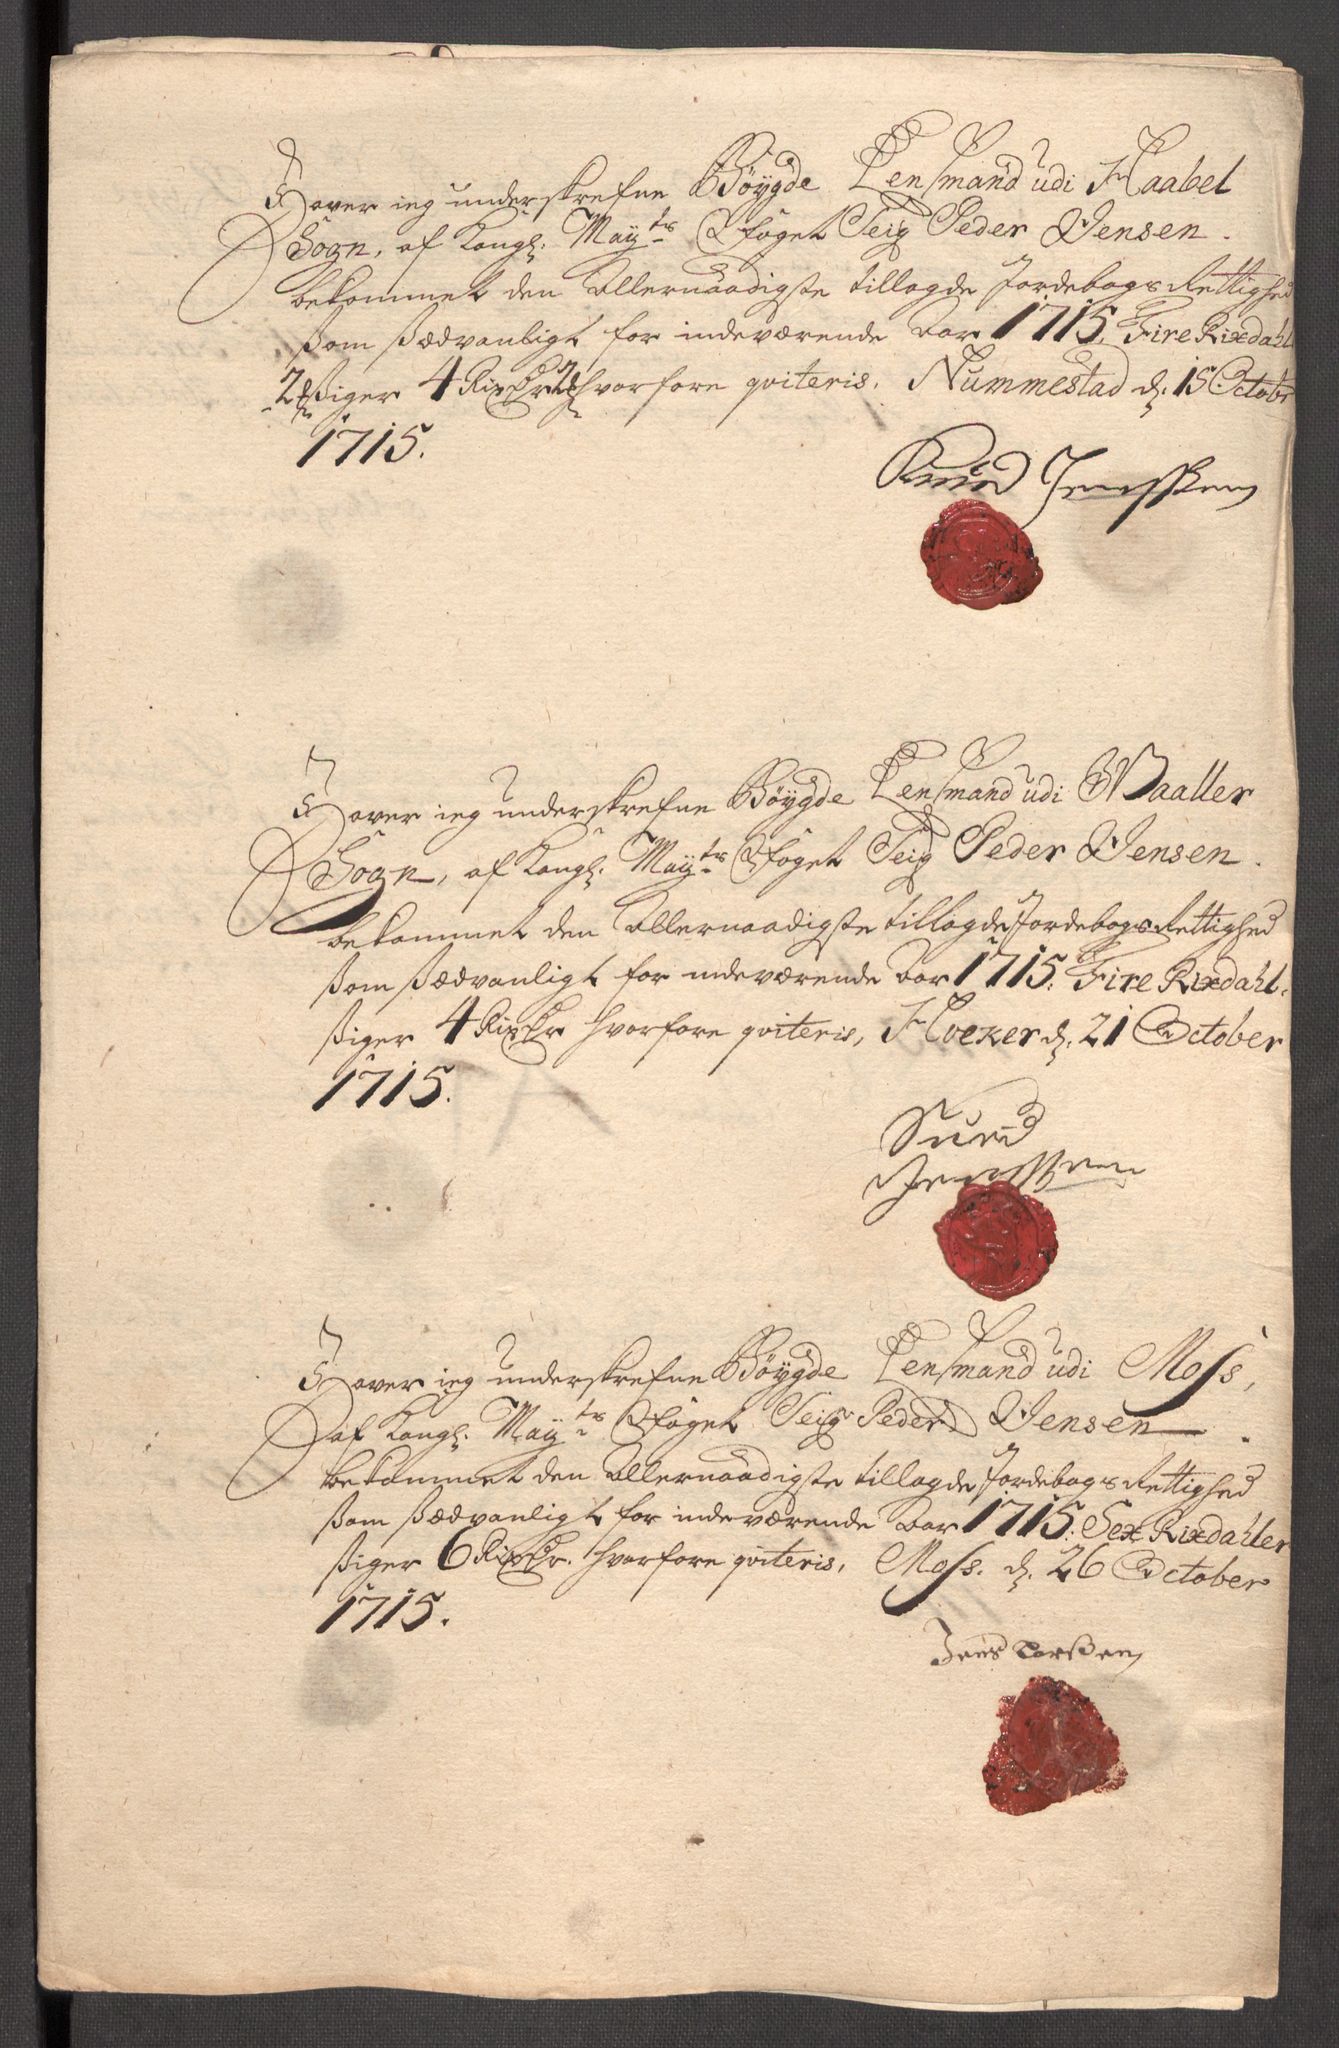 Hafver ieg underskrefne Bøygde Lensmand udi Haabel
Sogn, af Kongl: Mayts Foget Seig Peder Jensen.
bekommet den allernaadigste tillagde Jordebogs Rettighed
som sædvanligt for indeværende Aar 1715. Fire Rixdahl
2 siger 4 Rixdr 2 hvorfore qviteris. Nummestad d. 15 Octobr
1715.
Knud Jenssen
Hafver ieg underskrefne Bøygde Lensmand udi Waaller
Sogn, af Kongl: Mayts Foget Seig Peder Jensen.
bekommet den allernaadigste tillagde Jordebogs Rettighed
som sædvanligt for indeværende Aar 1715. Fire Rixdahl.
siger 4 Rixdr hvorfore qviteris, Hoeker d. 21 October
1715.
Hafver ieg underskrefne Bøygde Lensmand udi Moss,
af Kongl: Mayts Foget Seigr Peder Jensen.
bekommet den allernaadigste tillagde Jordebogs Rettighed
som sædvanligt for indeværende Aar 1715. Sex Rixdahler
siger 6 Rixdr. hvorfore qviteris. Moss. d. 26 October
1715.
Jens Larsen